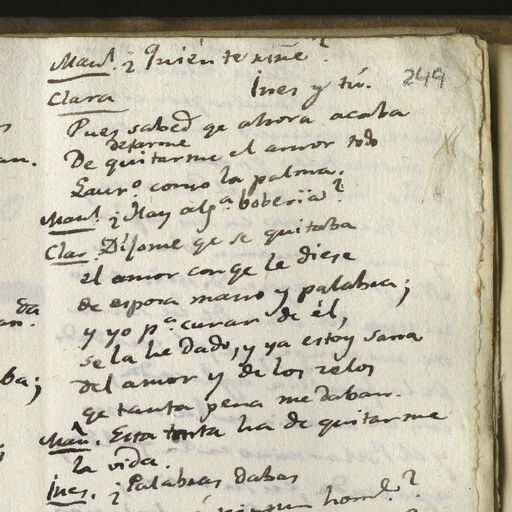 Manl. ¿Quién te riñe?
249
Clara Ines y tú.
Pues sabed qe ahora acaba
dejarme
De quitarme el amor todo
Laurº. como la palma.
Manl. ¿Hay algª. boberia?
Clar. Díjome qe se quitaba
el amor con qe le diese
de esposa mano y palabra;
y yo pª. curar de él,
se la he dado, y ya estoy sana
del amor y de los zelos
qe tanta pena me daban.
Man. Esta tonta ha de quitarme
la vida.
Ines. ¿Palabras dabas
homl.?